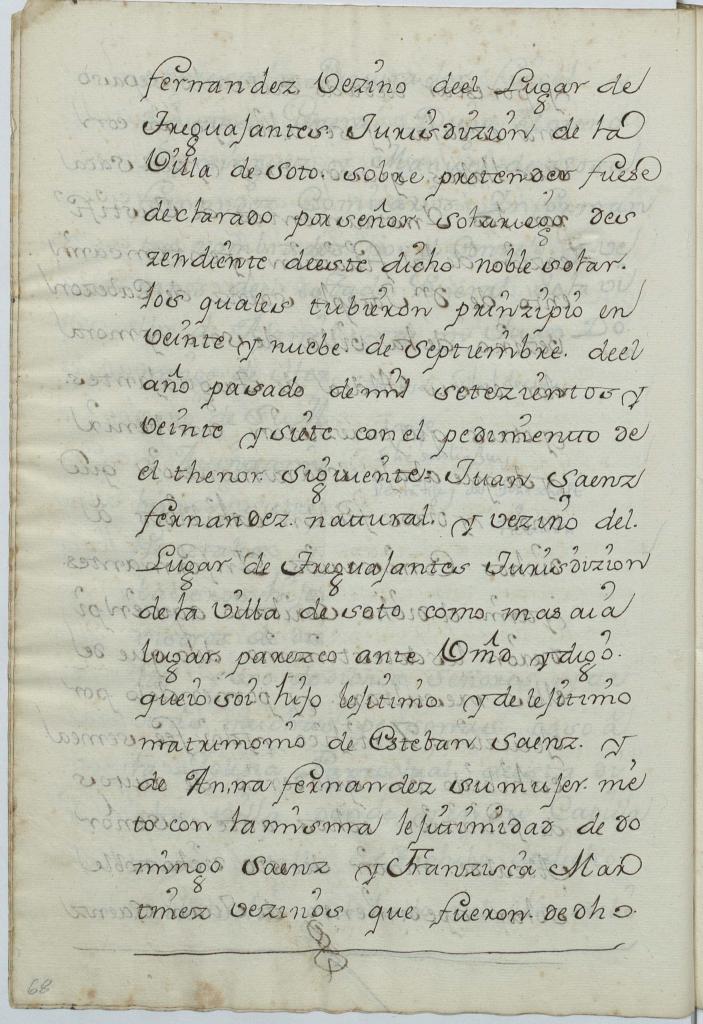 fernandez Vezino deel Lugar de
Treguajantes Jurisdizion de la
Villa de soto. sobre pretender fuese
declarado por señor solariego des
zendiente deeste dicho noble solar.
los quales tubieron prinzipio en
veinte y nuebe. de septiembre. deel
año pasado de mil setezientos y
veinte y siete con el pedimento de
el thenor. siguiente= Juan Saenz
fernandez. natural. y vezino del.
Lugar de Treguajantes Jurisdizion
de la villa de soto como mas aia
lugar parezco ante Vmd y digo.
queio soi hijo lejitimo y de lejitimo
matrimonio de Esteban saenz. y
de Anna fernandez su mujer. nie
to con la misma lejitimidad de do
mingo saenz y Franzisca Mar
tinez vezinos que fueron. de dho.
68